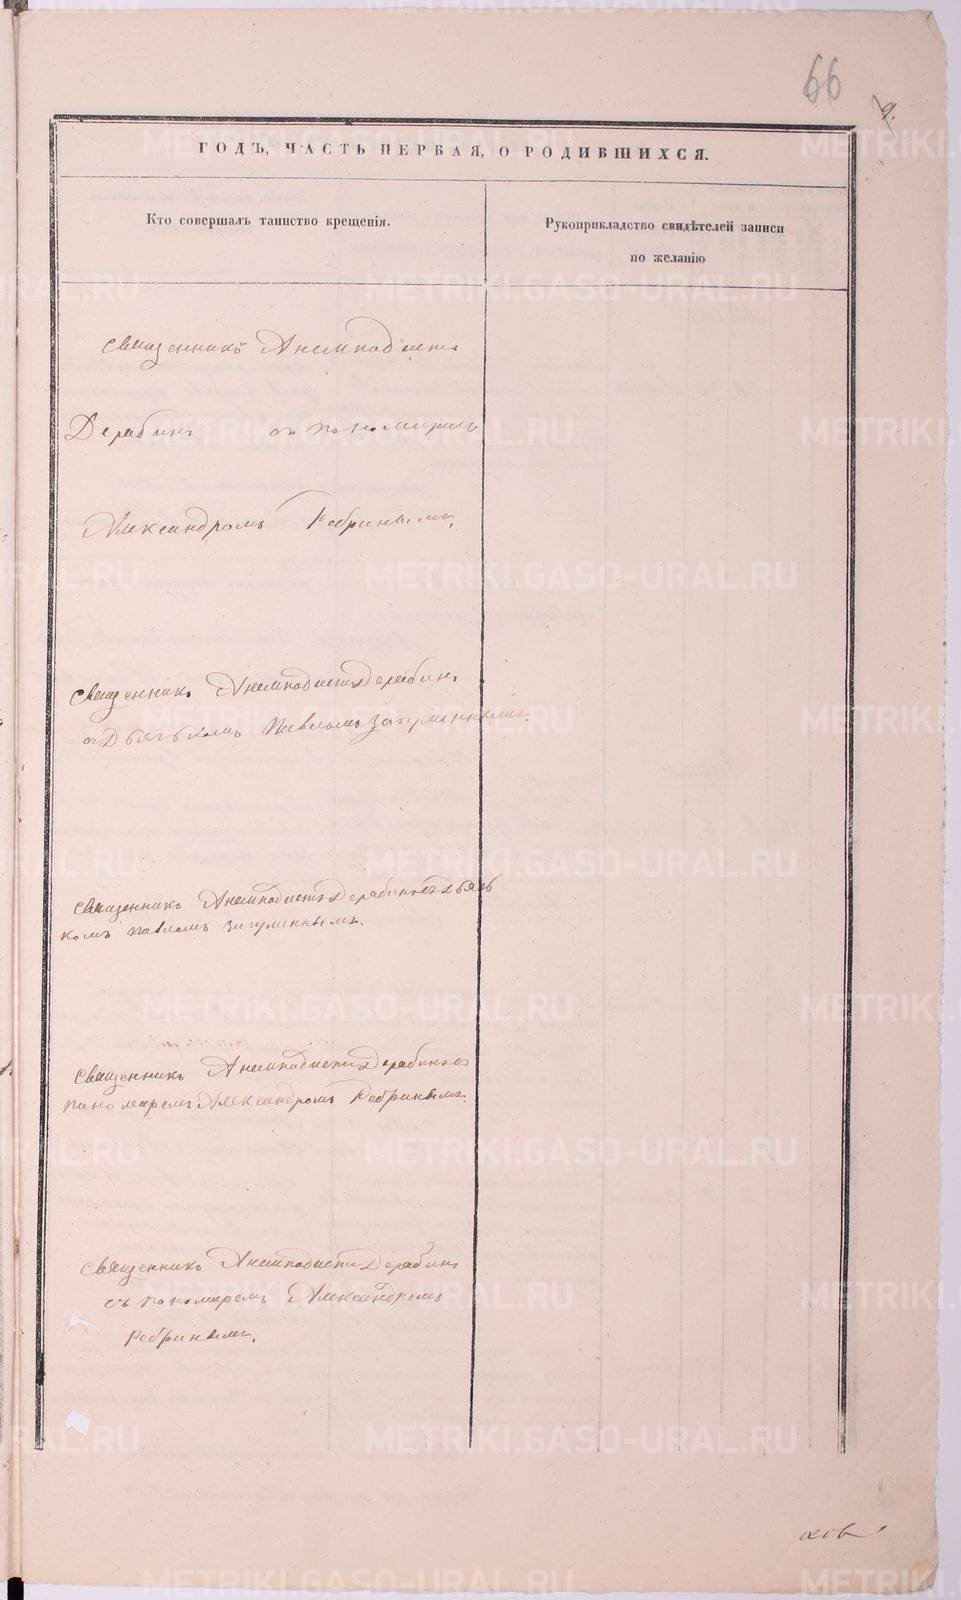 66
9.
ГОДЪ, ЧАСТЬ ПЕРВАЯ, О РОДИВШИХСЯ.
Кто совершалъ таинство крещенія.
Рукоприкладство свидѣтелей записи
по желанію
Священникъ Анемподистъ
Дерябинъ съ пономаремъ
Александромъ Ребринымъ,
Священникъ Анемподистъ Дерябинъ
съ Дьячькомъ Павломъ Загуминнымъ.
Священникъ Анемподистъ Дерябинъ съ Дьячь
комъ Павломъ Загуминнымъ.
Священникъ Анемподистъ Дерябинъ съ
пономаремъ Александромъ Ребринымъ.
Священникъ Анемподистъ Дерябинъ
съ пономаремъ Александромъ
Ребринымъ,
METRIKI.GASO-URAL.RU